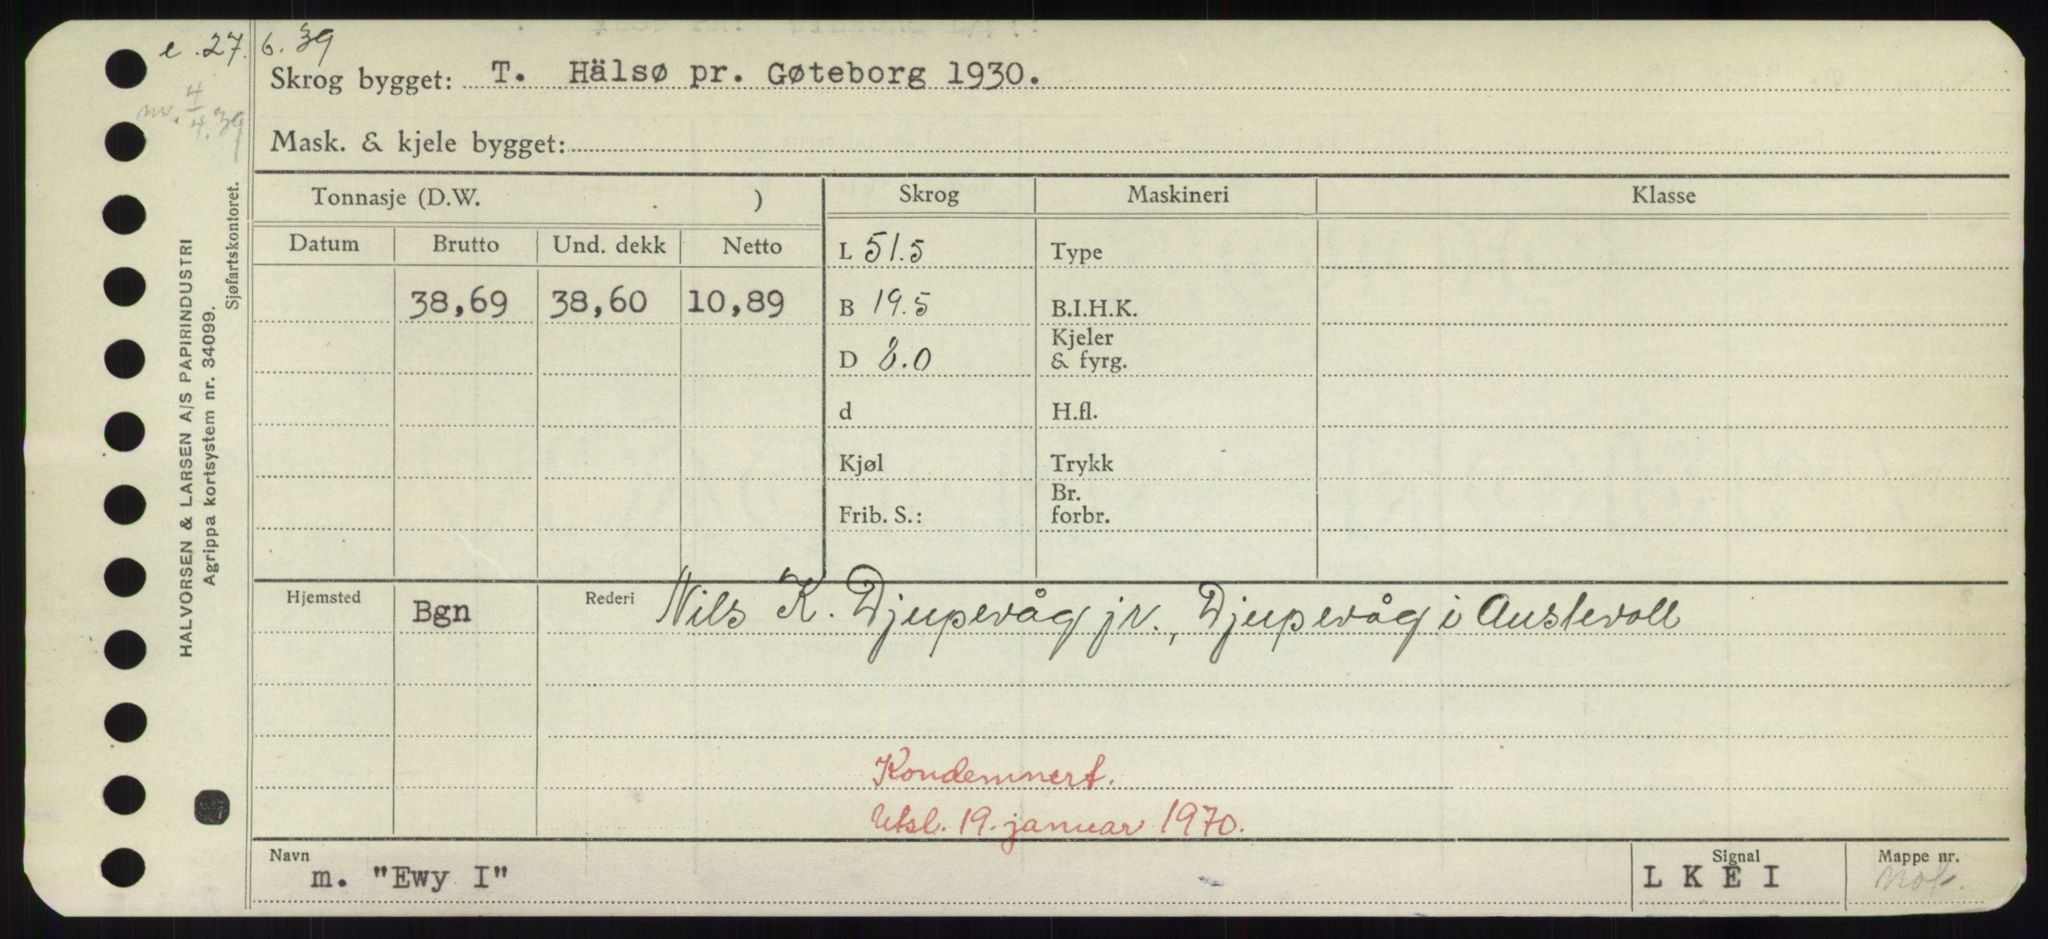 e. 27. 6. 39
Skrog bygget: T. Hälsø pr. Gøteborg 1930.
nv. 4/4. 39
Mask. & kjele bygget:
Tonnasje (D.W. ) Skrog Maskineri Klasse
Datum Brutto Und. dekk Netto
L 51.5 Type
38,69 38,60 10,89 B 19.5 B.I.H.K.
D 8.0 Kjeler & fyrg.
d H.fl.
Kjøl Trykk
Frib. S.: Br. forbr.
Hjemsted Bgn Rederi Nils K. Djupevåg jr., Djupevåg i Austevoll
Kondemnert.
Utsl. 19. januar 1970.
Navn m. "Ewy I" Signal L K E I Mappe nr.
HALVORSEN & LARSEN A/S PAPIRINDUSTRI
Agrippa kortsystem nr. 34099.
Sjøfartskontoret.